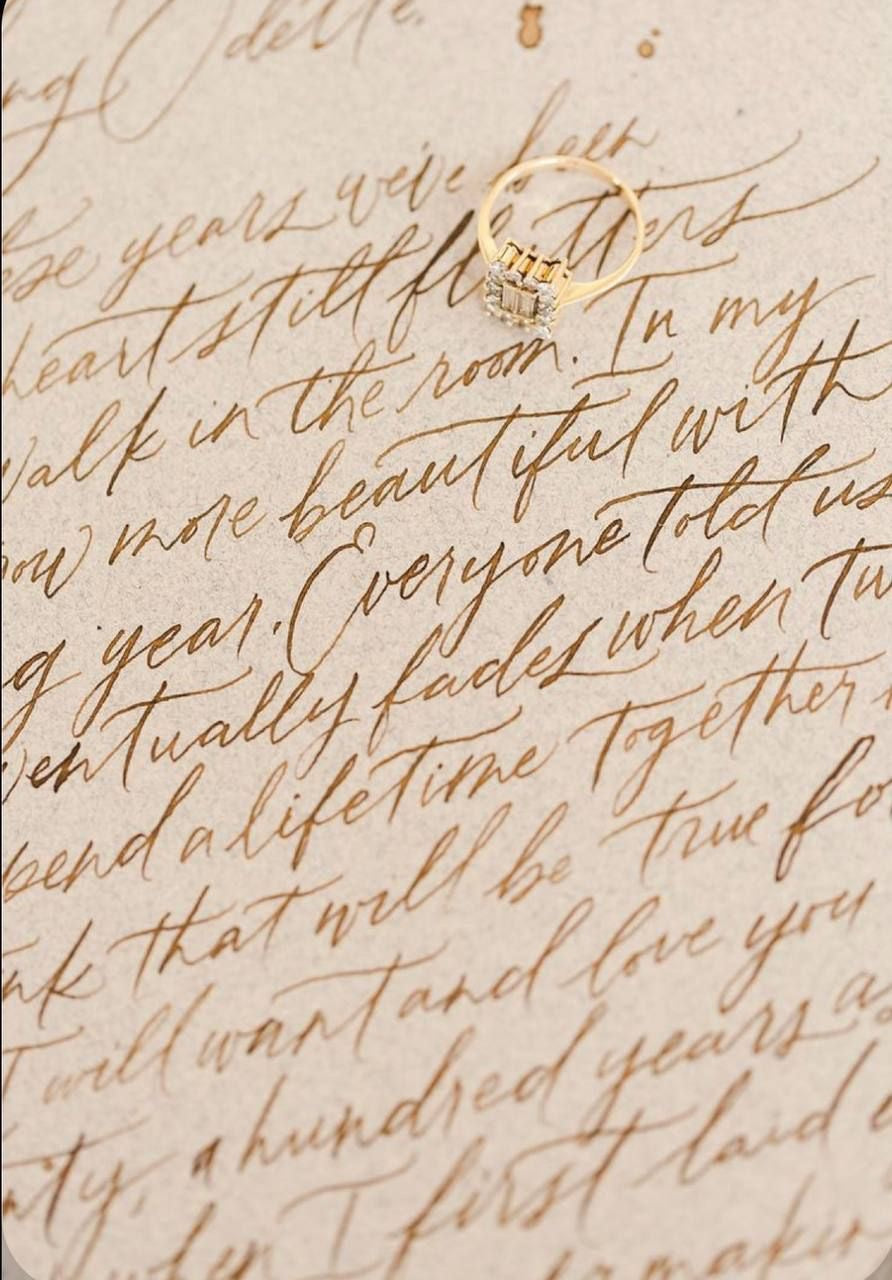 ng Odette.
ese years we've been
heart still fl tters
walk in the room. In my
now more beautiful with
g year. Everyone told us
ventually fades when tw
pend a lifetime together
nk that will be true fo
I will want and love you
nty, a hundred years as
when I first laid e